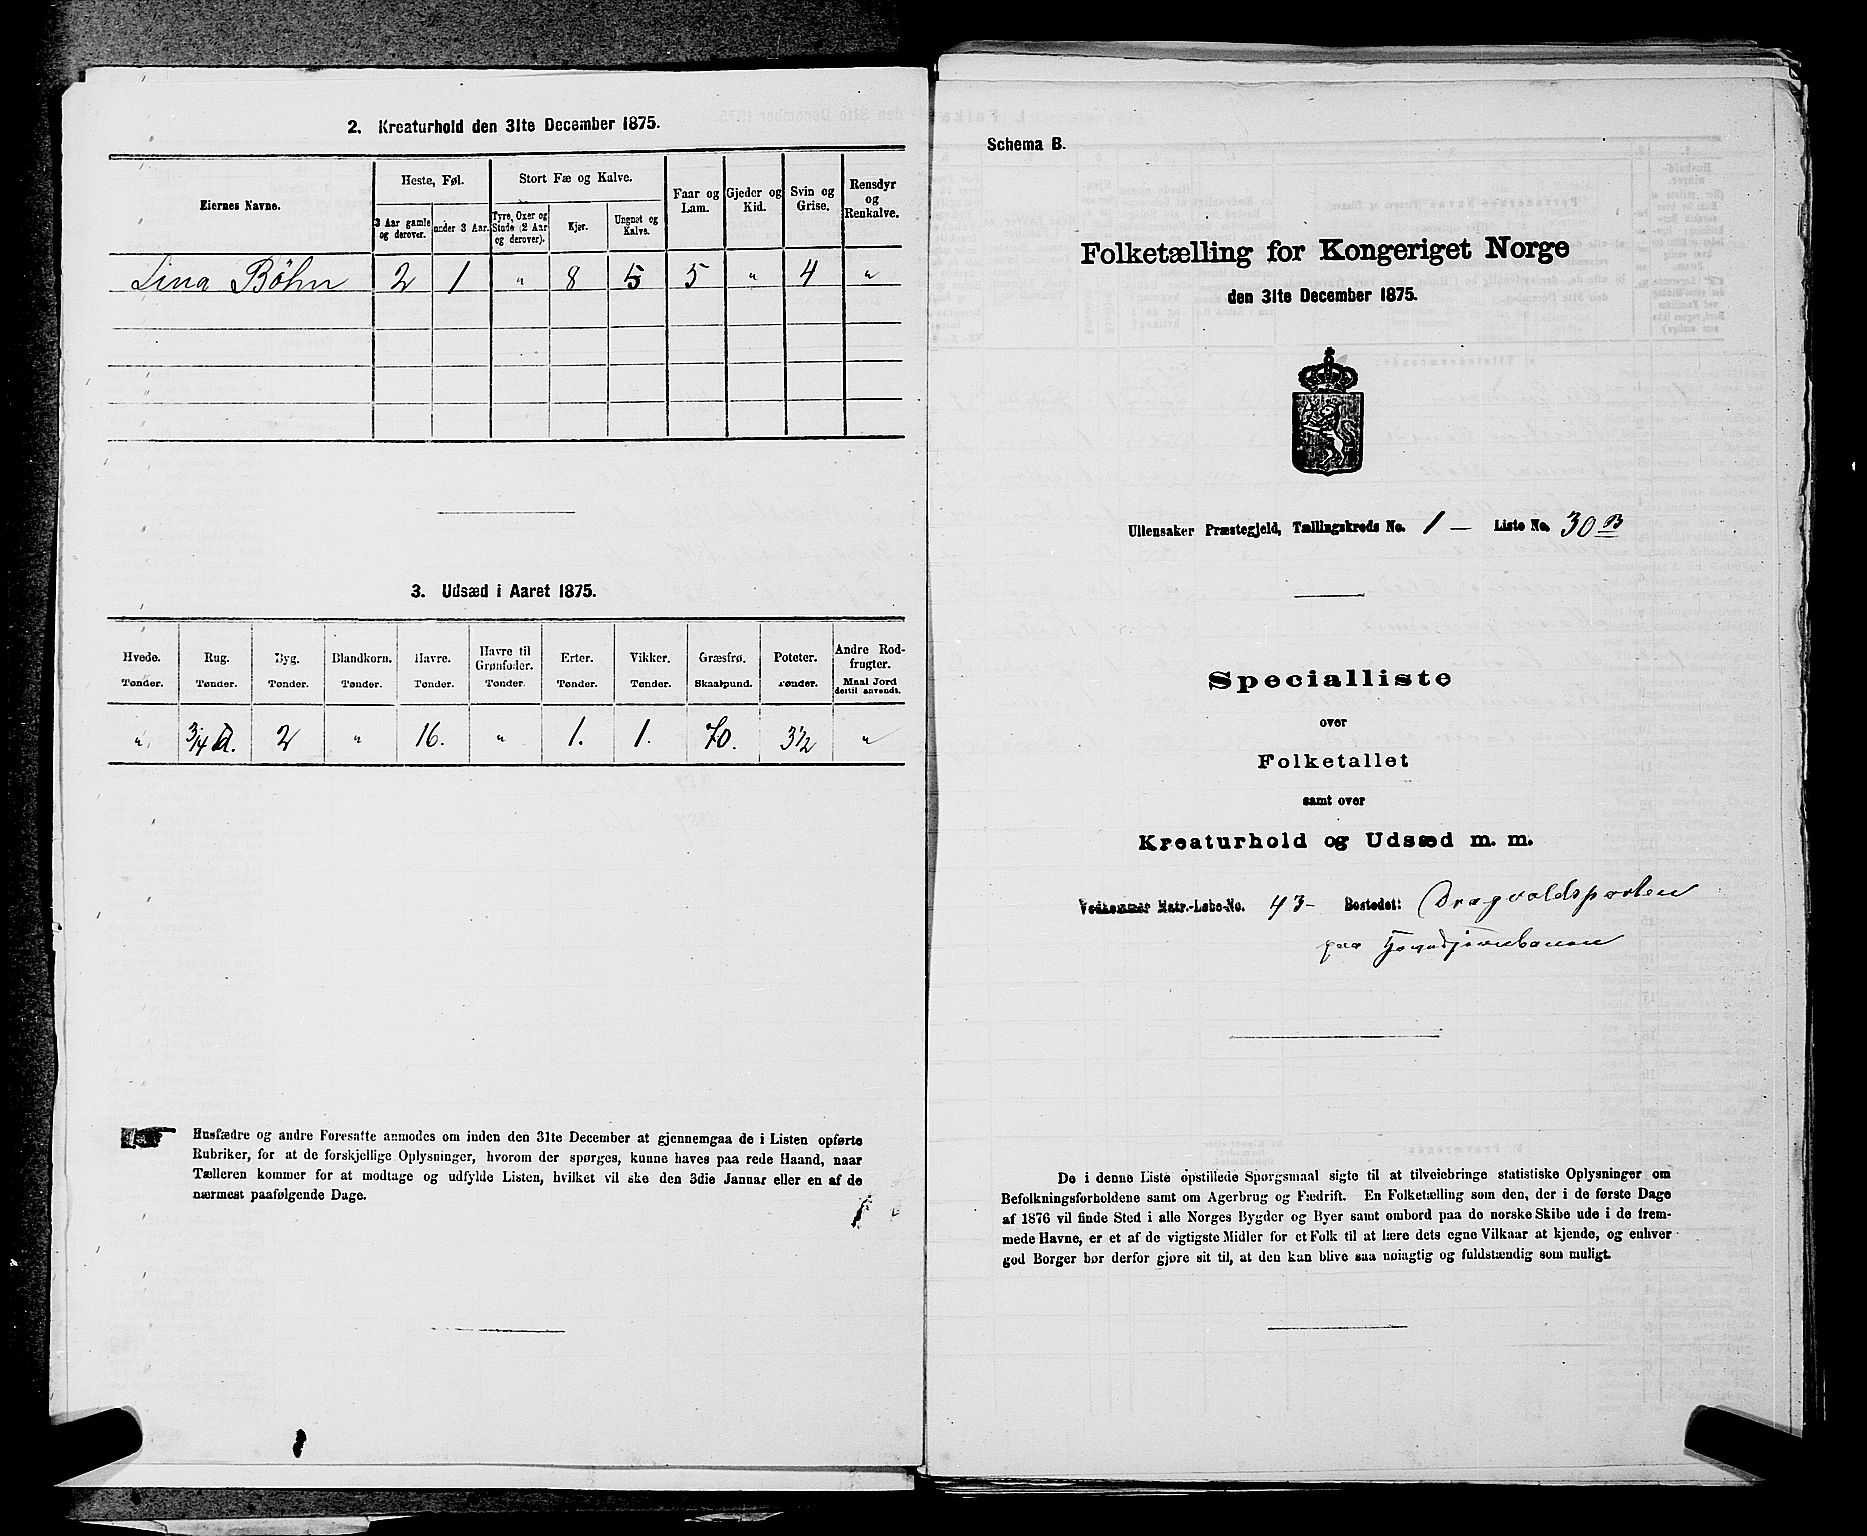 2. Kreaturhold den 31te December 1875.
Eiernes Navne.
Heste, Føl.
Stort Fæ og Kalve.
Faar og Lam.
Gjeder og Kid.
Svin og Grise.
Rensdyr og Renkalve.
3 Aar gamle og derover.
under 3 Aar.
Tyre, Oxer og Stude (2 Aar og derover).
Kjør.
Ungnøt og Kalve.
Lina Bøhn 2 1 " 8 5 5 " 4 "
3. Udsæd i Aaret 1875.
Hvede. Rug. Byg. Blandkorn. Havre. Havre til Grønfoder. Erter. Vikker. Græsfrø. Poteter. Andre Rodfrugter.
Tønder. Tønder. Tønder. Tønder. Tønder. Tønder. Tønder. Tønder. Skaalpund. Tønder. Maal Jord dertil anvendt.
" 3/4 2 " 16. " 1. 1. 70. 3½ "
Husfædre og andre Foresatte anmodes om inden den 31te December at gjennemgaa de i Listen opførte
Rubriker, for at de forskjellige Oplysninger, hvorom der spørges, kunne haves paa rede Haand, naar
Tælleren kommer for at modtage og udfylde Listen, hvilket vil ske den 3die Januar eller en af de
nærmest paafølgende Dage.
Schema B.
Folketælling for Kongeriget Norge
den 31te December 1875.
Ullensaker Præstegjeld, Tællingskreds No. 1 — Liste No. 30 B
Specialliste
over
Folketallet
samt over
Kreaturhold og Udsæd m. m.
Vedkommer Matr.-Løbe-No. 43- Bostedet: Dragvoldsporten
paa
De i denne Liste opstillede Spørgsmaal sigte til at tilveiebringe statistiske Oplysninger om
Befolkningsforholdene samt om Agerbrug og Fædrift. En Folketælling som den, der i de første Dage
af 1876 vil finde Sted i alle Norges Bygder og Byer samt ombord paa de norske Skibe ude i de frem-
mede Havne, er et af de vigtigste Midler for et Folk til at lære dets egne Vilkaar at kjende, og enhver
god Borger bør derfor gjøre sit til, at den kan blive saa nøiagtig og fuldstændig som muligt.